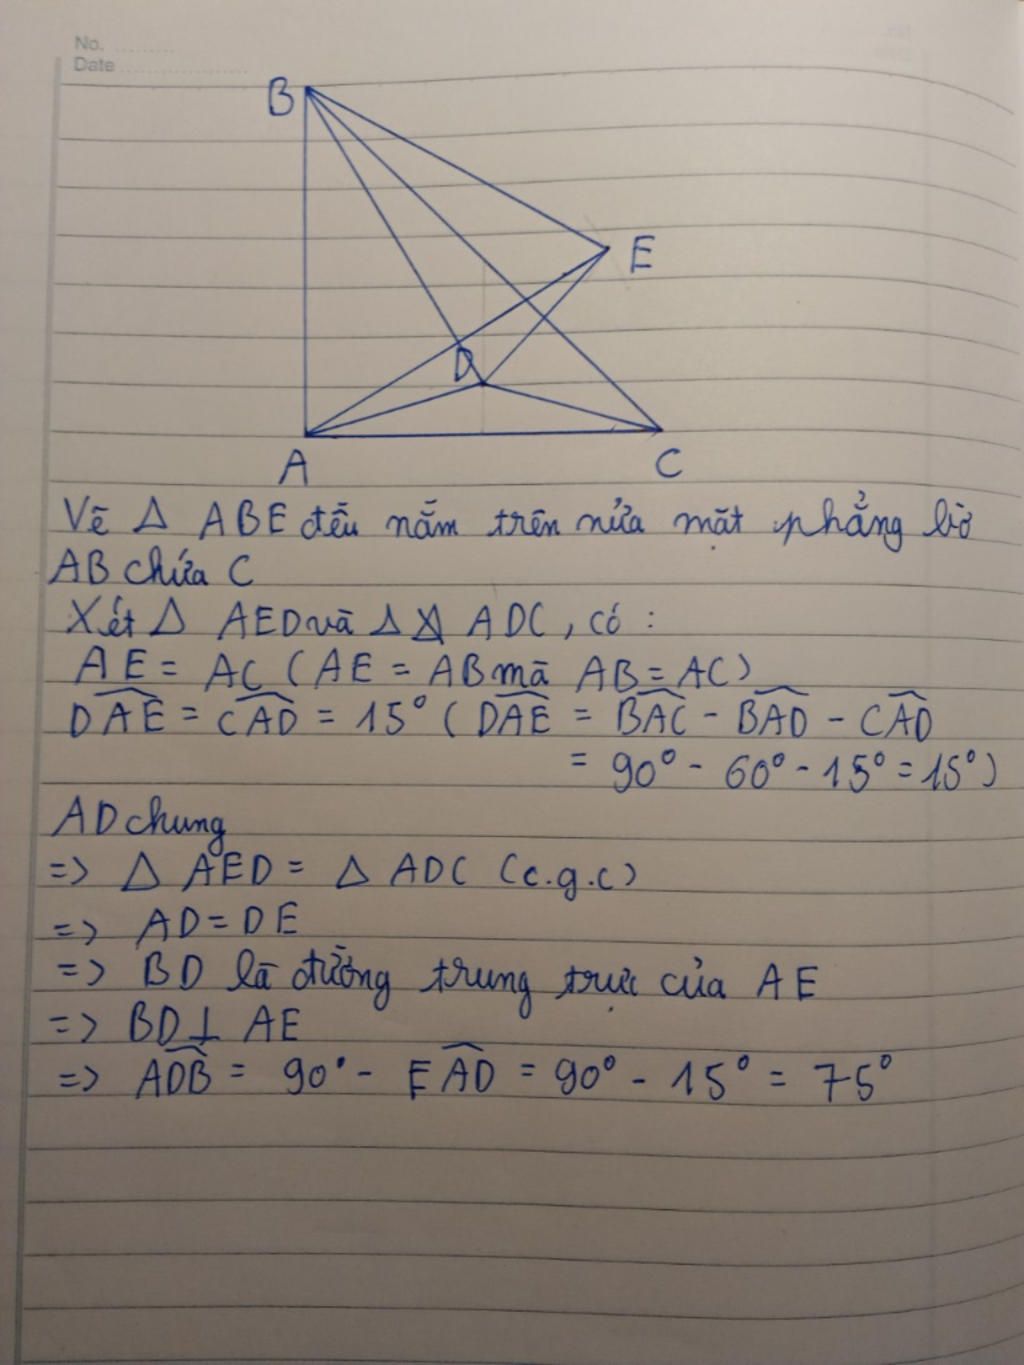 No.
Date
B
E
D
A
C
Vẽ Δ ABE đều nằm trên nửa mặt phẳng bờ
AB chứa C
Xét Δ AED và Δ ADC, có :
AE = AC ( AE = AB mà AB = AC )
DAE = CAD = 15° ( DAE = BAC - BAD - CAD
= 90° - 60° - 15° = 15° )
AD chung
=> Δ AED = Δ ADC (c.g.c)
=> AD = DE
=> BD là đường trung trực của AE
=> BD ⊥ AE
=> ADB = 90° - EAD = 90° - 15° = 75°